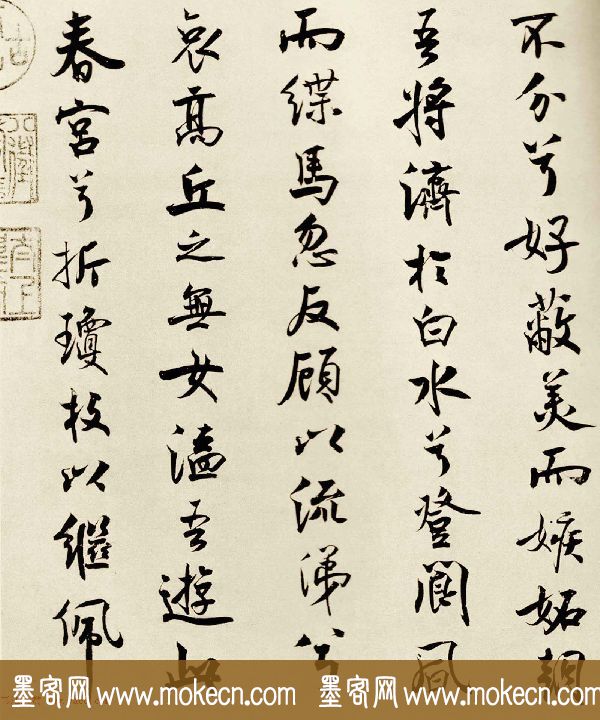 不分兮好蔽美而嫉妬朝
吾将濟於白水兮登閬風
而緤馬忽反顧以流涕兮
哀高丘之無女溘吾遊此
春宮兮折瓊枝以繼佩
墨客网 www.mokecn.com 墨客网 www.mokecn.com